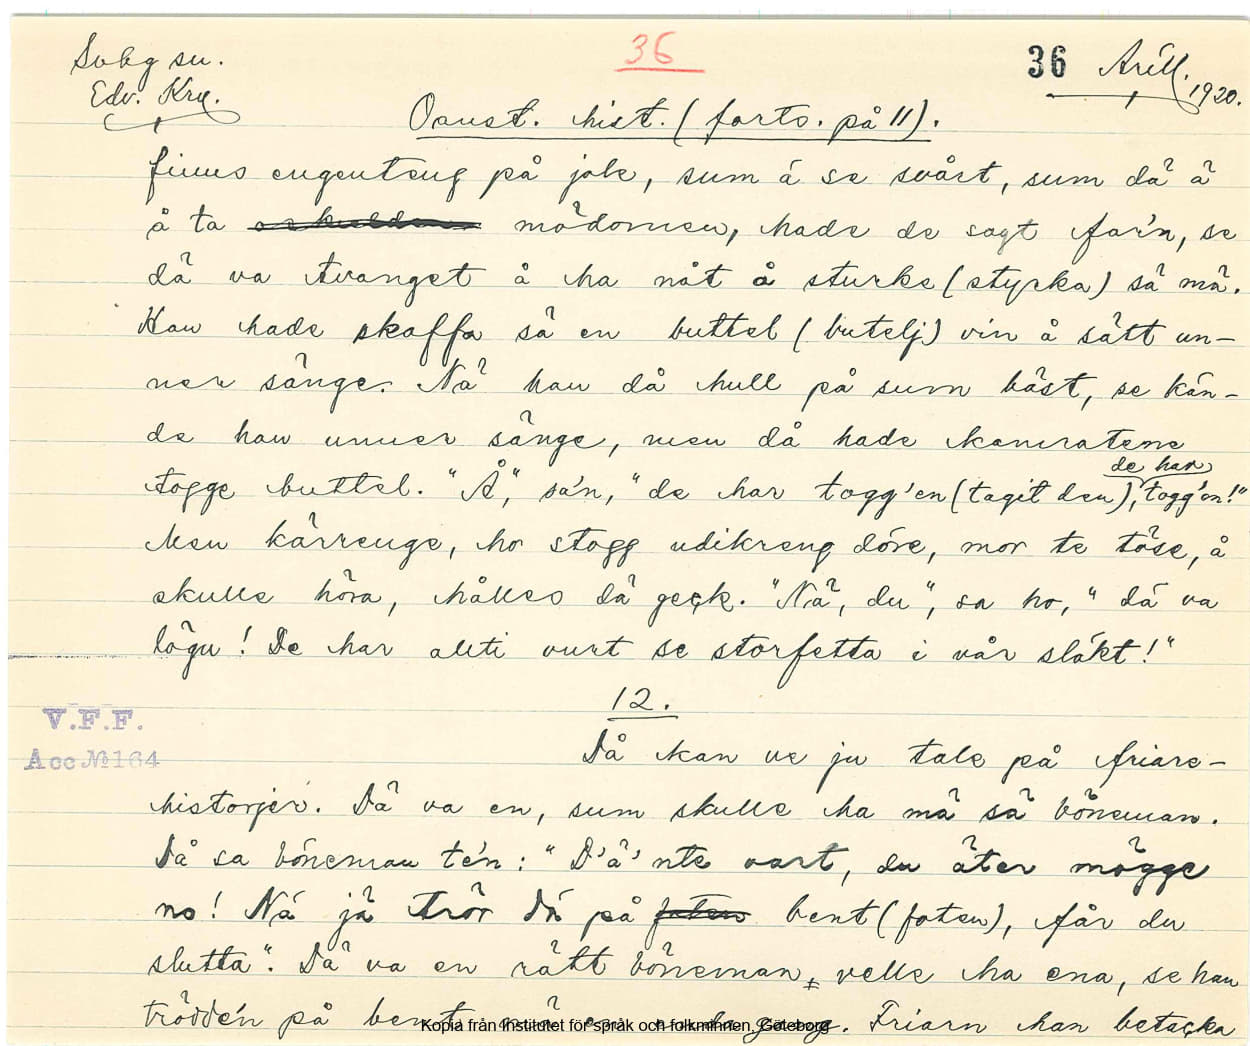 36
Svbg sn.
36 Arill.
Edv. Kru.
1920.
Oanst. hist. (forts. på 11).
finns engenteng på jole, sum á se svårt, sum dä ä
å ta mödomen, hade de sagt far'n, se
dä va tvanget å ha nåt å sturke (styrka) sä mä.
Han hade skaffa sä en buttel (butelj) vin å sått un-
ner sänge. Nä han då hull på sum bäst, se kän-
de han unner sänge, men då hade kamratene
togge buttel. "Å", sa'n, "de har togg'en (tagit den), de har togg'en!"
Men kärrenge, ho stogg udikreng döre, mor te töse, å
skulle höra, hålles dä geçk. "Nä, du", sa ho, "dá va
lögn! De har allti vurt se storfetta i vår släkt!"
12.
V.F.F.
Då kan ve ju tale på friare-
Acc № 164
historjer. Dä va en, sum skulle ha mä sä böneman.
Då sa böneman te'n: "D'ä' nte vart, du äter mögge
no! Ná jä trör dä på bent (foten), får du
slutta". Dä va en rätt böneman, velle ha ena, se han
trödde'n på bent gang. Friarn han betaçka
Kopia från Institutet för språk och folkminnen, Göteborg